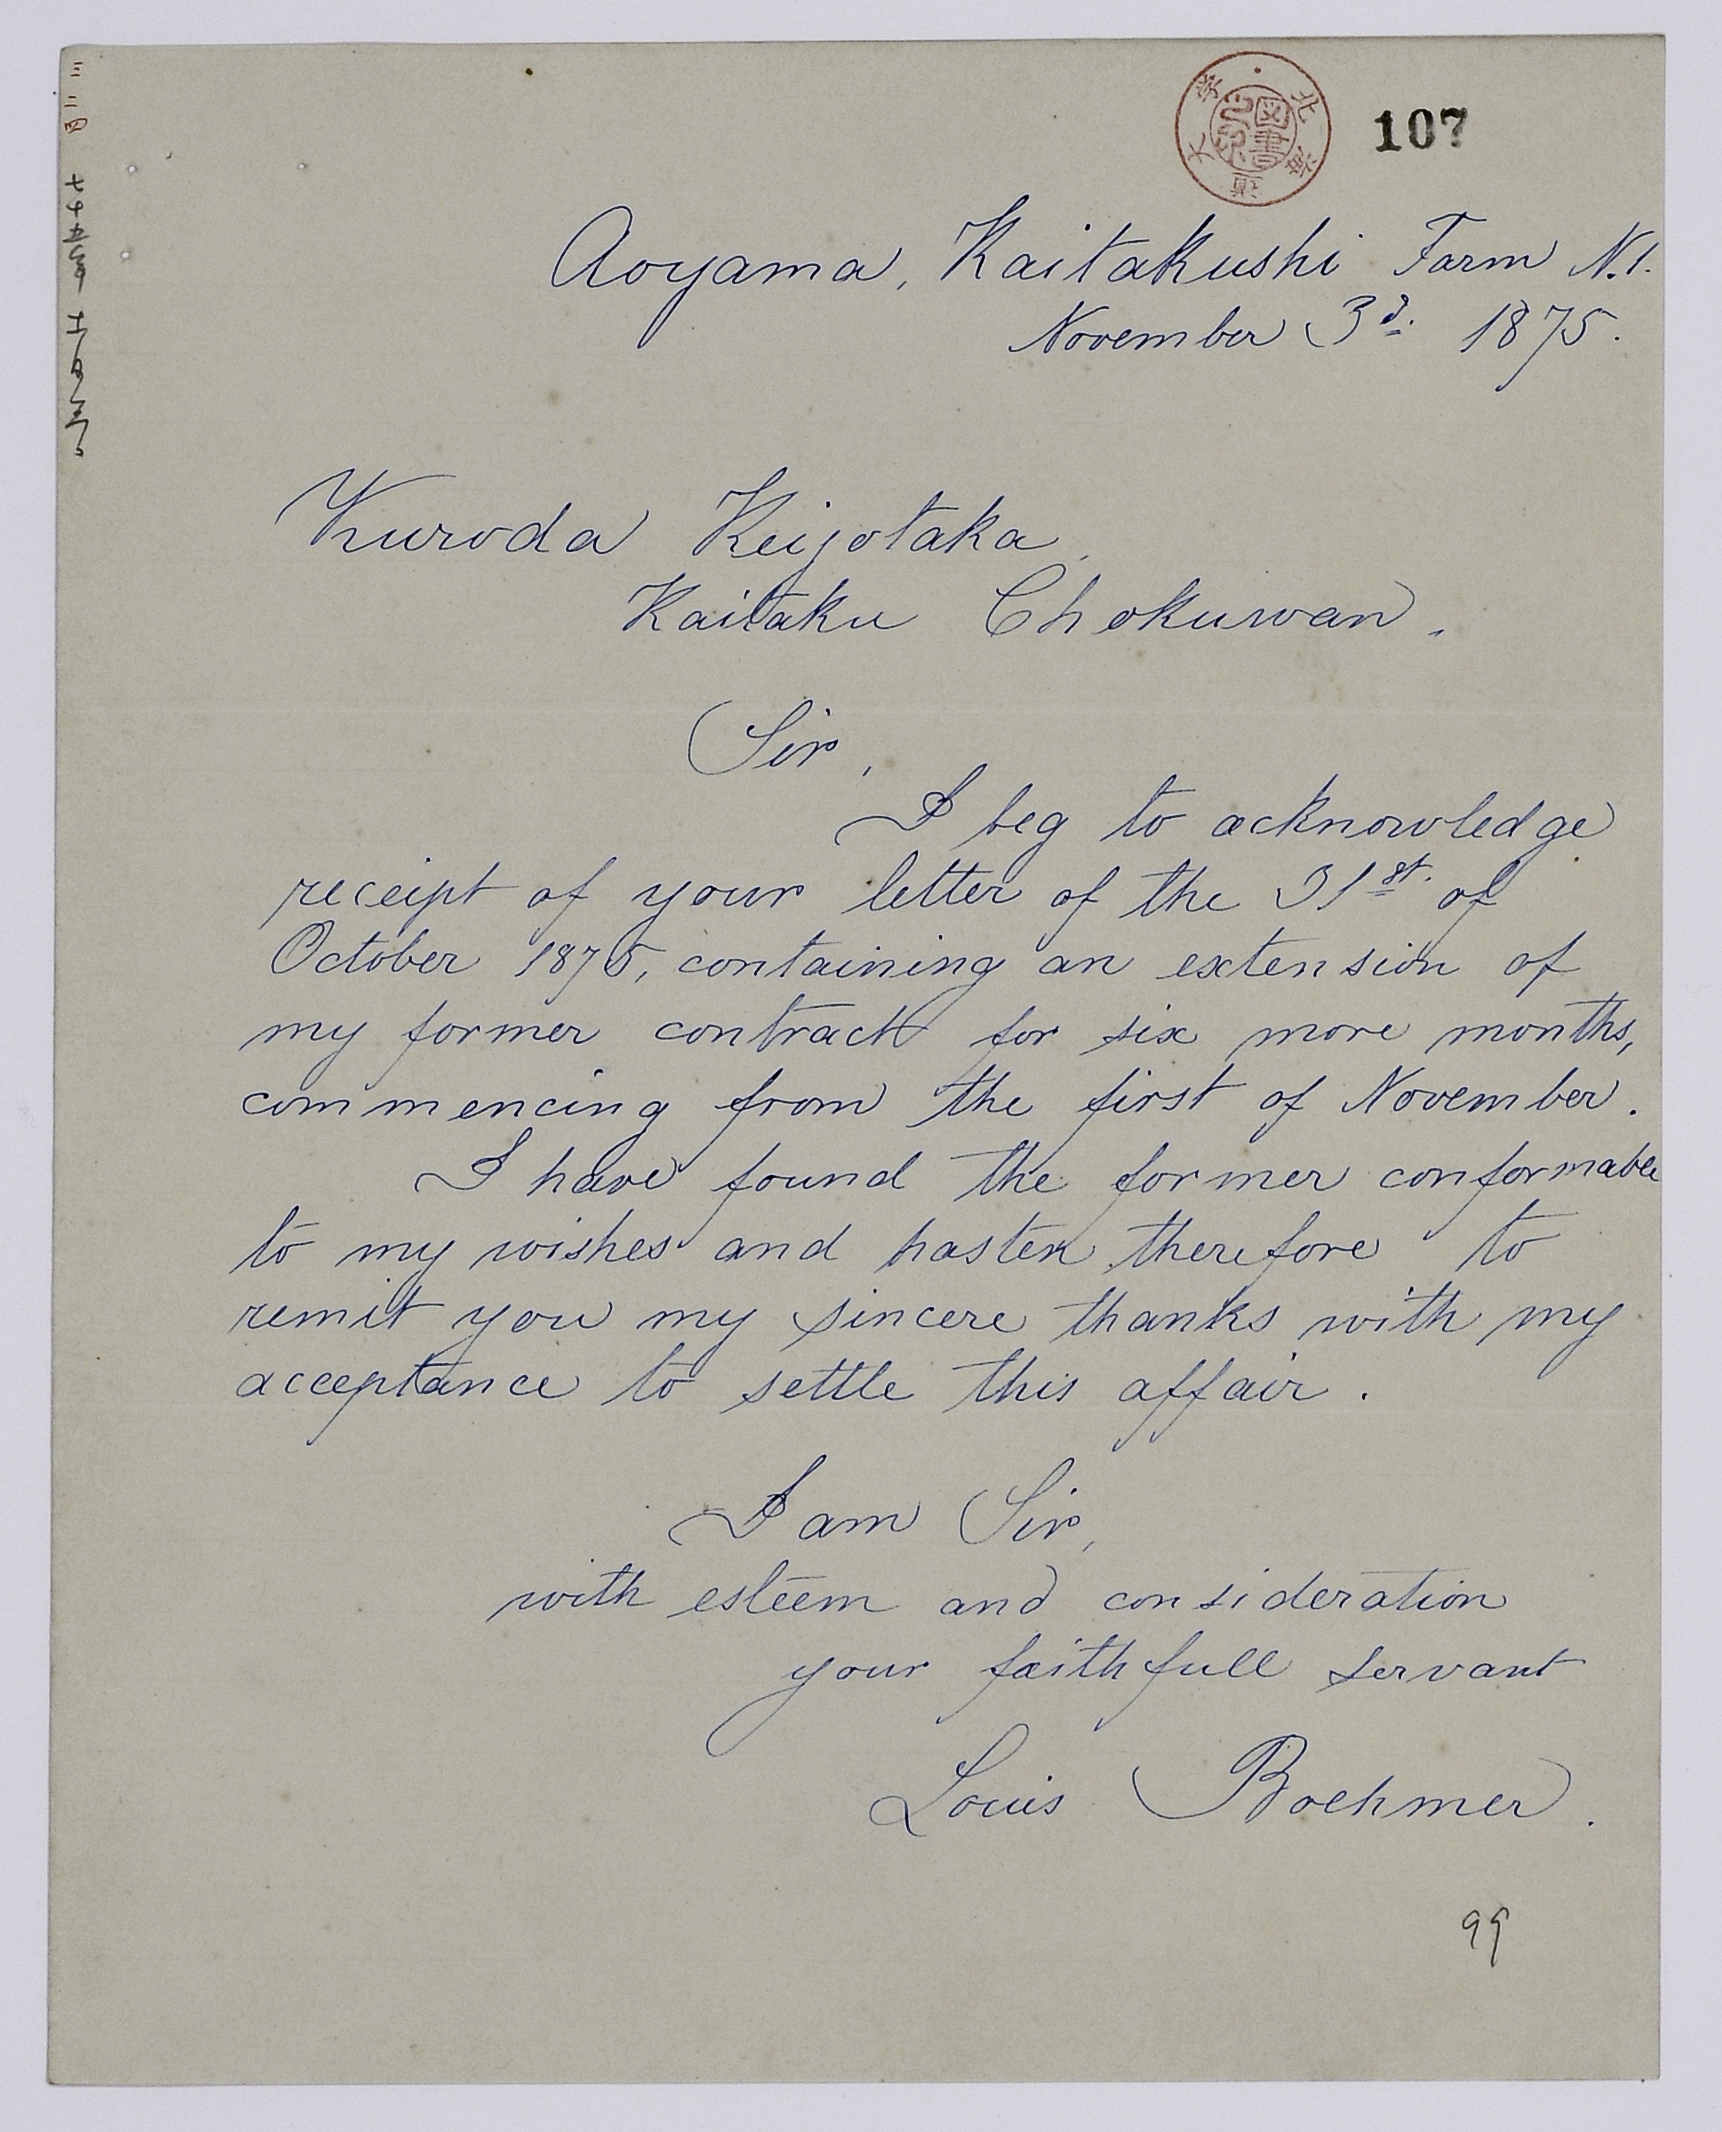 107
北海道大学
図書
Aoyama, Kaitakushi Farm N.1.
November 3d. 1875.
Kuroda Keijotaka,
Kaitaku Chokuwan.
Sir,
I beg to acknowledge
receipt of your letter of the 31st. of
October 1875, containing an extension of
my former contract for six more months,
commencing from the first of November.
I have found the former conformable
to my wishes and hasten therefore to
remit you my sincere thanks with my
acceptance to settle this affair.
I am Sir,
with esteem and consideration
your faithfull servant
Louis Boehmer.
99
三二四